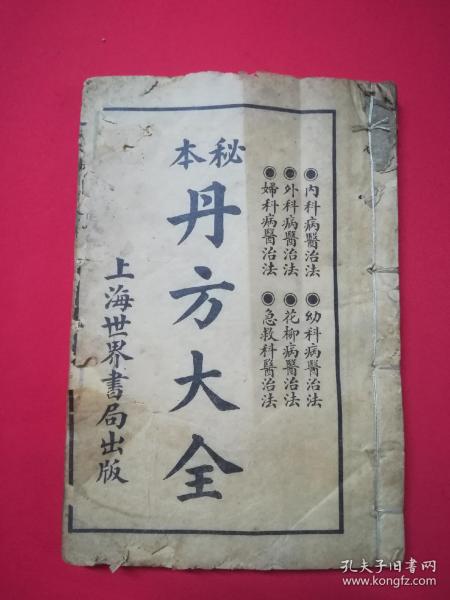 ●內科病醫治法 ●幼科病醫治法
●外科病醫治法 ●花柳病醫治法
●婦科病醫治法 ●急救科醫治法
秘本
丹方大全
上海世界書局出版
孔夫子旧书网
www.kongfz.com